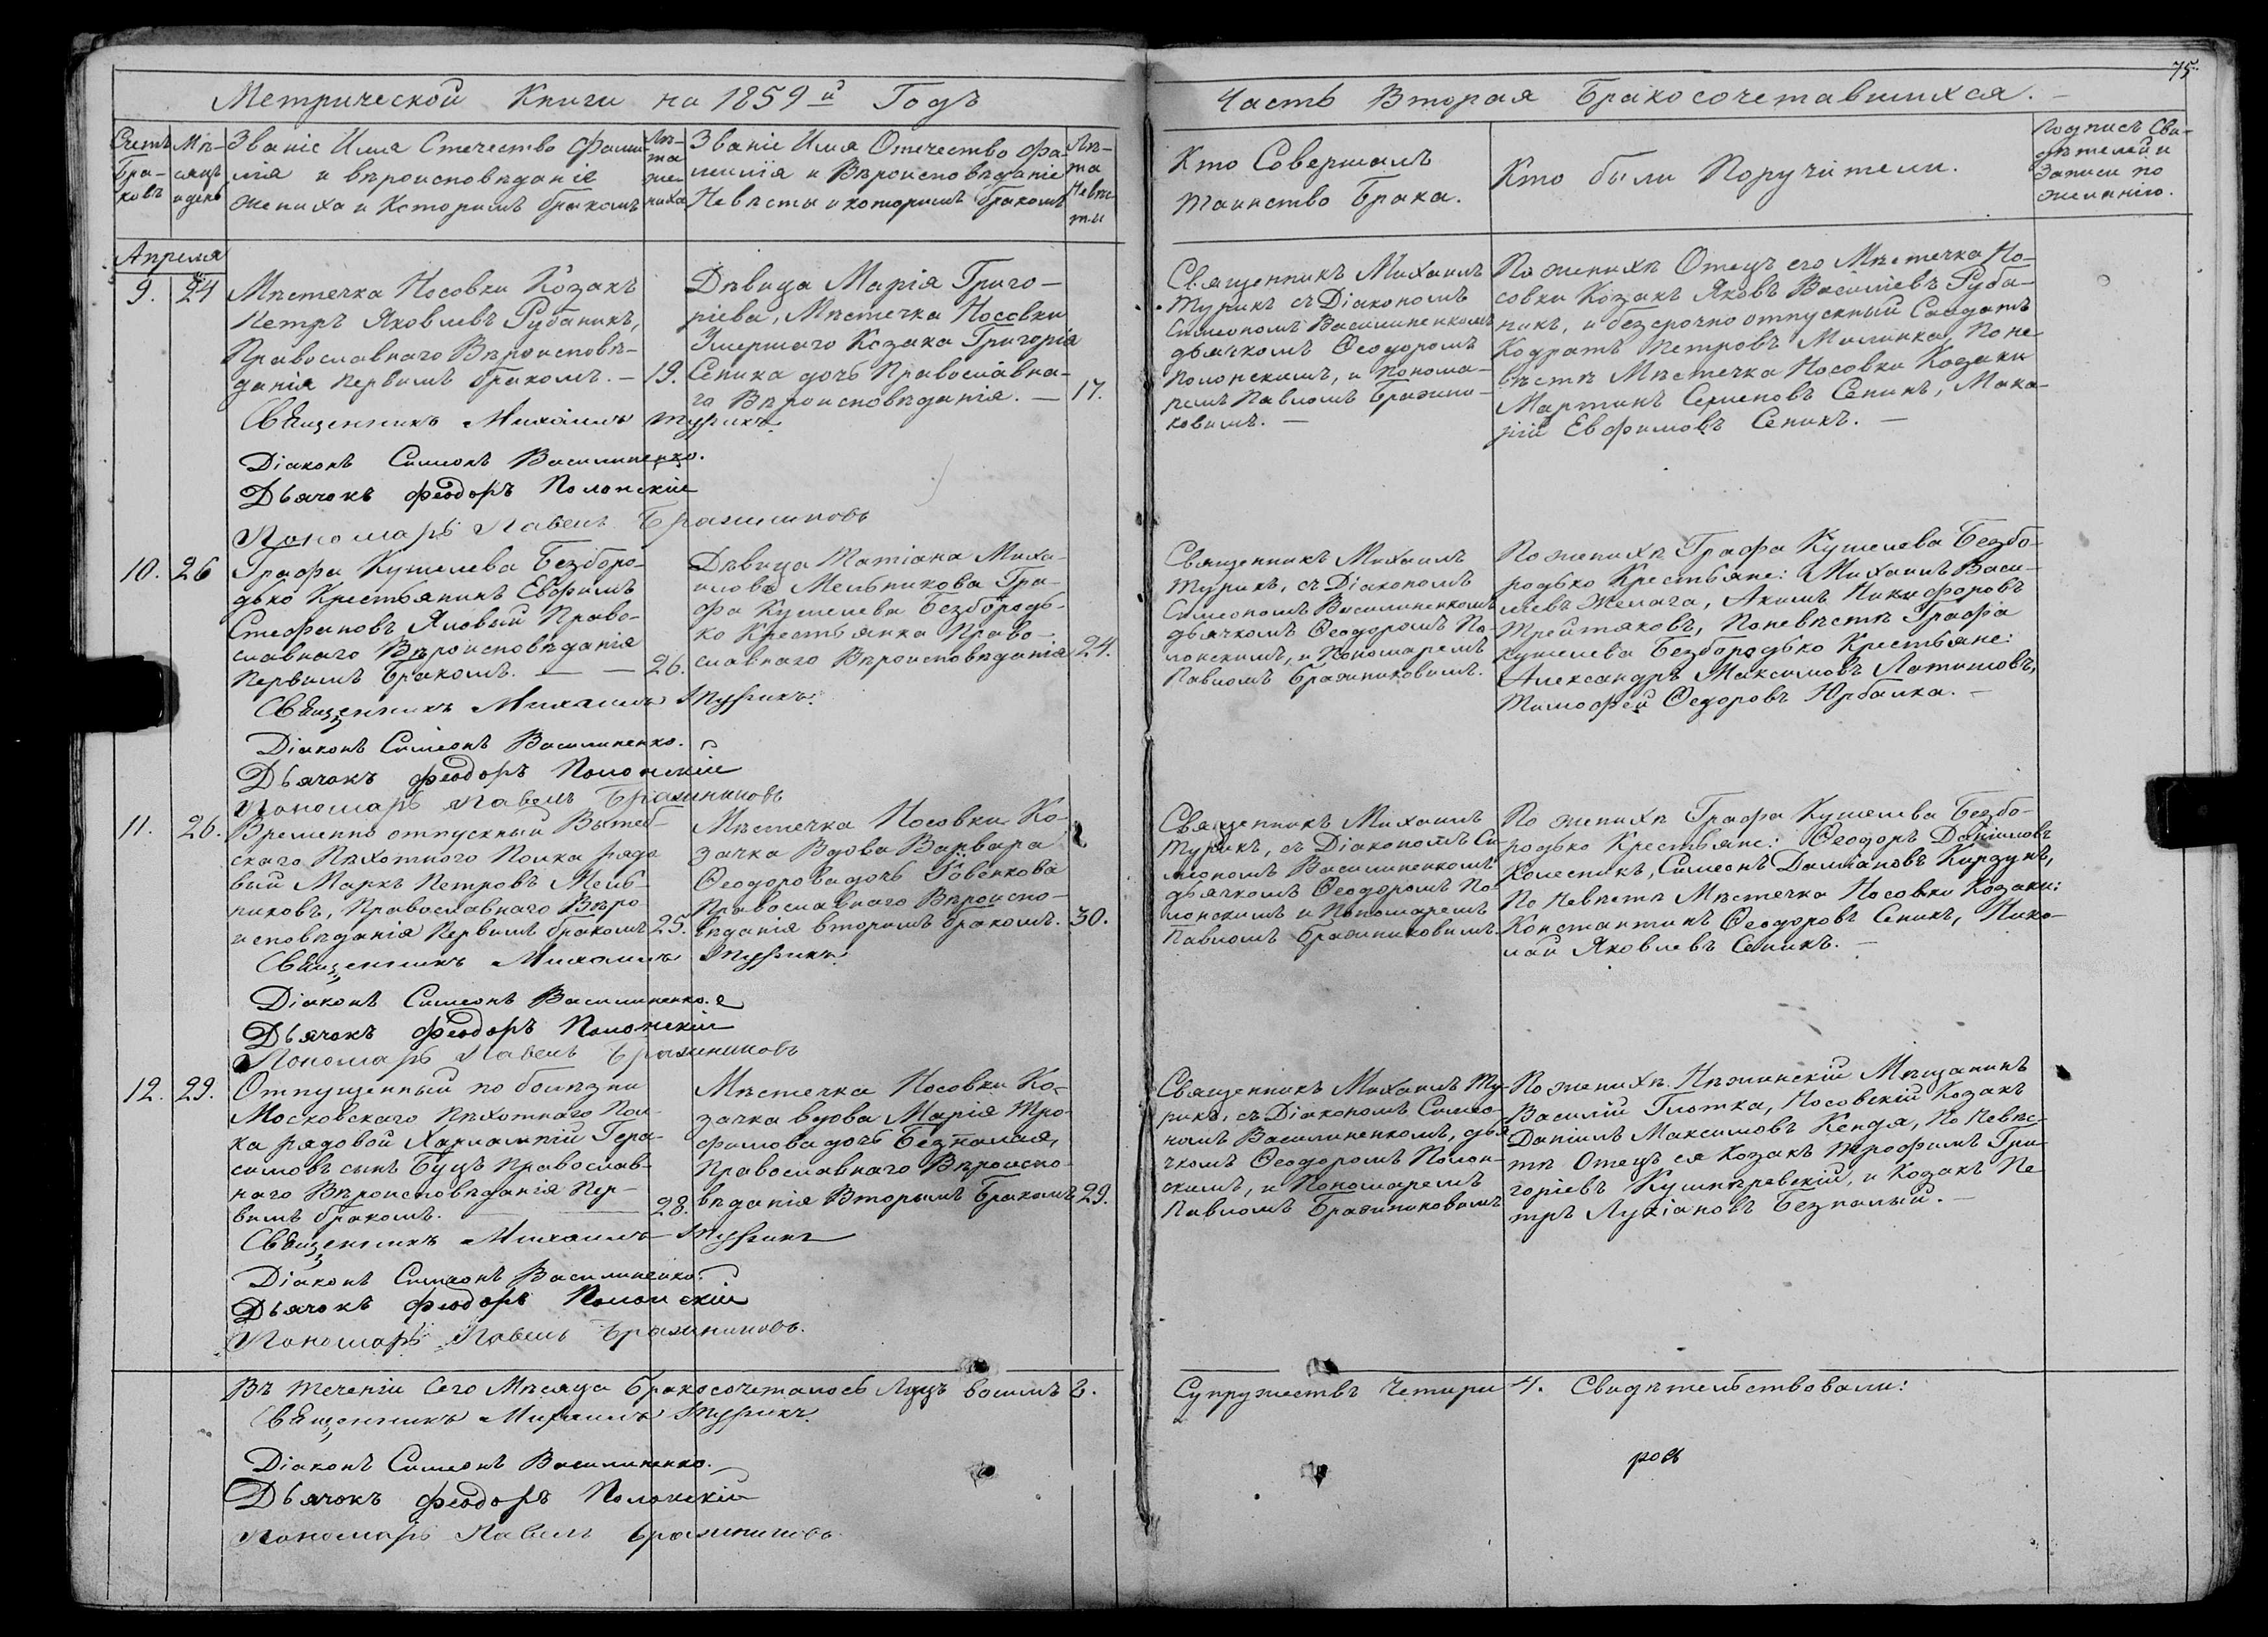 75.
Метрической Книги на 1859й Годъ
Часть Вторая Бракосочетавшихся.
Счетъ
Бра-
ковъ
Мѣ-
сяцъ
и день
Званіе Имя Отечество Фами-
лія и вѣроисповѣданіе
жениха и Которимъ бракомъ
Лѣ-
та
же-
ниха
Званіе Имя Отечество Фа-
милія и Вѣроисповѣданіе
Невѣсты и которимъ бракомъ
Лѣ-
та
Невѣс
ты
Кто Совершалъ
Таинство Брака.
Кто были Поручители.
Подписъ Сви-
дѣтелей и
Записи по
желанію.
Апреля
9.
24
Мѣстечка Носовки Козакъ
Петръ Яковлевъ Рубаникъ,
Православнаго Вѣроисповѣ-
данія первимъ бракомъ. —
19.
Дѣвица Марія Григо-
ріева, Мѣстечка Носовки
Умершаго Козака Григорія
Сепика дочь Православна-
го Вѣроисповѣданія. —
17.
Священникъ Михаилъ
Турикъ съ Діакономъ
Симеономъ Василиненкомъ
дьячкомъ Ѳеодоромъ
Полонскимъ, и понома-
ремъ Павломъ Бражни-
ковимъ. —
По женихѣ Отецъ его Мѣстечка Но-
совки Козакъ Яковъ Василіевъ Руба-
никъ, и безсрочно отпускный Салдатъ
Кодратъ Петровъ Малинка, По не-
вѣстѣ Мѣстечка Носовки Козаки
Мартинъ Семеновъ Сепикъ, Мака-
рій Евфимовъ Сепикъ. —
Священникъ Михаилъ Турикъ.
Діаконъ Симеонъ Василиненко.
Дьячокъ Феодоръ Полонскій
Пономарь Павелъ Бражниковъ
10.
26
Графа Кушелева Безборо-
дько Крестьянинъ Евфимъ
Стефановъ Яловий Право-
славнаго Вѣроисповѣданія
первимъ Бракомъ. —
26.
Дѣвица Татіана Миха-
илова Мельникова Гра-
фа Кушелева Безбородь-
ко Крестьянка Право-
славнаго Вѣроисповѣданія
24.
Священникъ Михаилъ
Турикъ, съ Діакономъ
Симеономъ Василиненкомъ
дьячкомъ Ѳеодоромъ По-
лонскимъ, и Пономаремъ
Павломъ Бражниковимъ.
По женихѣ Графа Кушелева Безбо-
родько Крестьяне: Михаилъ Васи-
левъ Желага, Акимъ Никифоровъ
Трейтяковъ, По невѣстѣ Графа
Кушелева Безбородько Крестьяне:
Александръ Максимовъ Латишовъ,
Тимофей Ѳедоровъ Юрбалка. —
Священникъ Михаилъ Турикъ.
Діаконъ Симеонъ Василиненко.
Дьячокъ Феодоръ Полонскій
Пономарь Павелъ Бражниковъ
11.
26.
Временно отпускный Витеб-
скаго Пѣхотнаго Полка рядо
вый Маркъ Петровъ Мель-
никовъ, Православнаго Вѣро-
исповѣданія Первимъ бракомъ
25.
Мѣстечка Носовки Ко-
зачка Вдова Варвара
Ѳеодорова дочь Говенкова
Православнаго Вѣроиспо-
вѣданія вторимъ бракомъ.
30.
Священникъ Михаилъ
Турикъ, съ Діакономъ Си
меономъ Василиненкомъ
дьячкомъ Ѳеодоромъ По-
лонскимъ и Пономаремъ
Павломъ Бражниковимъ
По женихѣ Графа Кушелева Безбо-
родько Крестьяне: Ѳеодоръ Даніиловъ
Колесникъ, Симеонъ Даміановъ Кирдунъ,
По невѣстѣ Мѣстечка Носовки Козаки:
Константинъ Ѳеодоровъ Сепикъ, Нико-
лай Яковлевъ Сепикъ. —
Священникъ Михаилъ Турикъ
Діаконъ Симеонъ Василиненко.
Дьячокъ Феодоръ Полонскій
Пономарь Павелъ Бражниковъ
12.
29.
Отпущенный по болѣзни
Московскаго Пѣхотнаго Пол-
ка рядовой Харлампій Гера-
симовъ сынъ Буцъ Православ-
наго Вѣроисповѣданія Пер-
вимъ бракомъ. —
28.
Мѣстечка Носовки Ко-
зачка вдова Марія Тро-
фимова дочь Безпалая,
Православнаго Вѣроиспо-
вѣданія Вторымъ Бракомъ
29.
Священникъ Михаилъ Ту-
рикъ, съ Діакономъ Симео-
номъ Василиненкомъ, дья
чкомъ Ѳеодоромъ Полон-
скимъ, и Пономаремъ
Павломъ Бражниковимъ
По женихѣ Нѣжинскій Мѣщанинъ
Василій Глотка, Носовскій Козакъ
Даніилъ Максимовъ Кендя, По Невѣс-
тѣ Отецъ ея Козакъ Трофимъ Гри-
горіевъ Кушнѣревскій, и Козакъ Пе-
тръ Лукіановъ Безпалый. —
Священникъ Михаилъ Турикъ
Діаконъ Симеонъ Василиненко.
Дьячокъ Феодоръ Полонскій
Пономарь Павелъ Бражниковъ.
Въ теченіи Сего Мѣсяца Бракосочеталось Лицъ восимъ 8.
Супружествъ Четири 4. Свидѣтельствовали:
Священникъ Михаилъ Турикъ
Діаконъ Симеонъ Василиненко.
Дьячокъ Феодоръ Полонскій
Пономарь Павелъ Бражниковъ